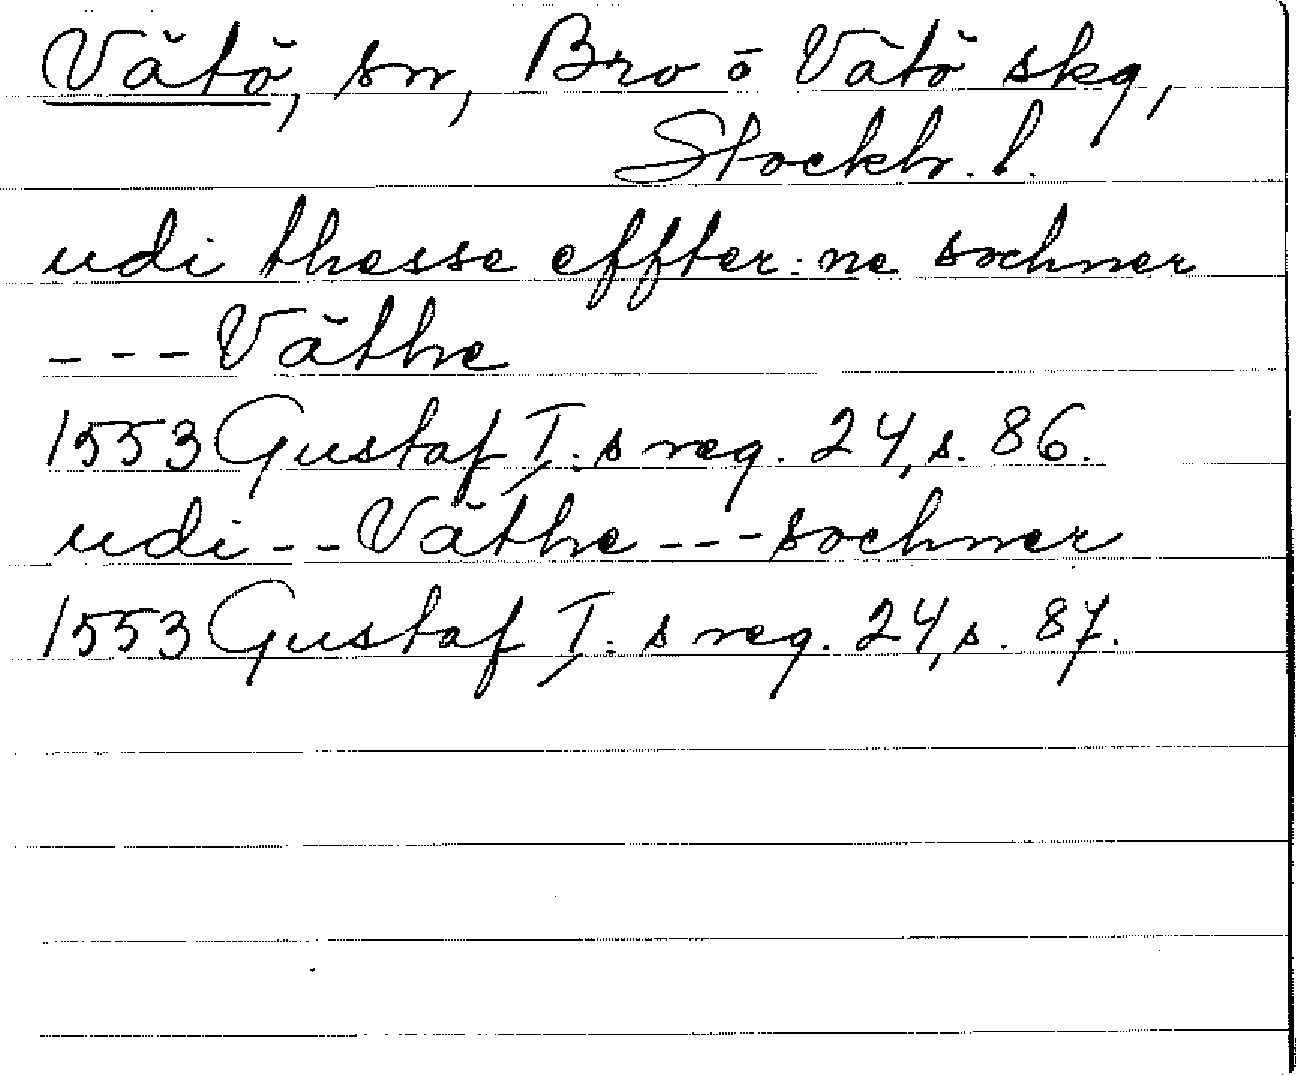 Vätö, sn, Bro o Vätö skg,
Stockh. l.
udi thesse effter:ne sochner
--- Väthe
1553 Gustaf I:s reg. 24, s. 86.
udi -- Väthe --- sochner
1553 Gustaf I:s reg. 24, s. 87.